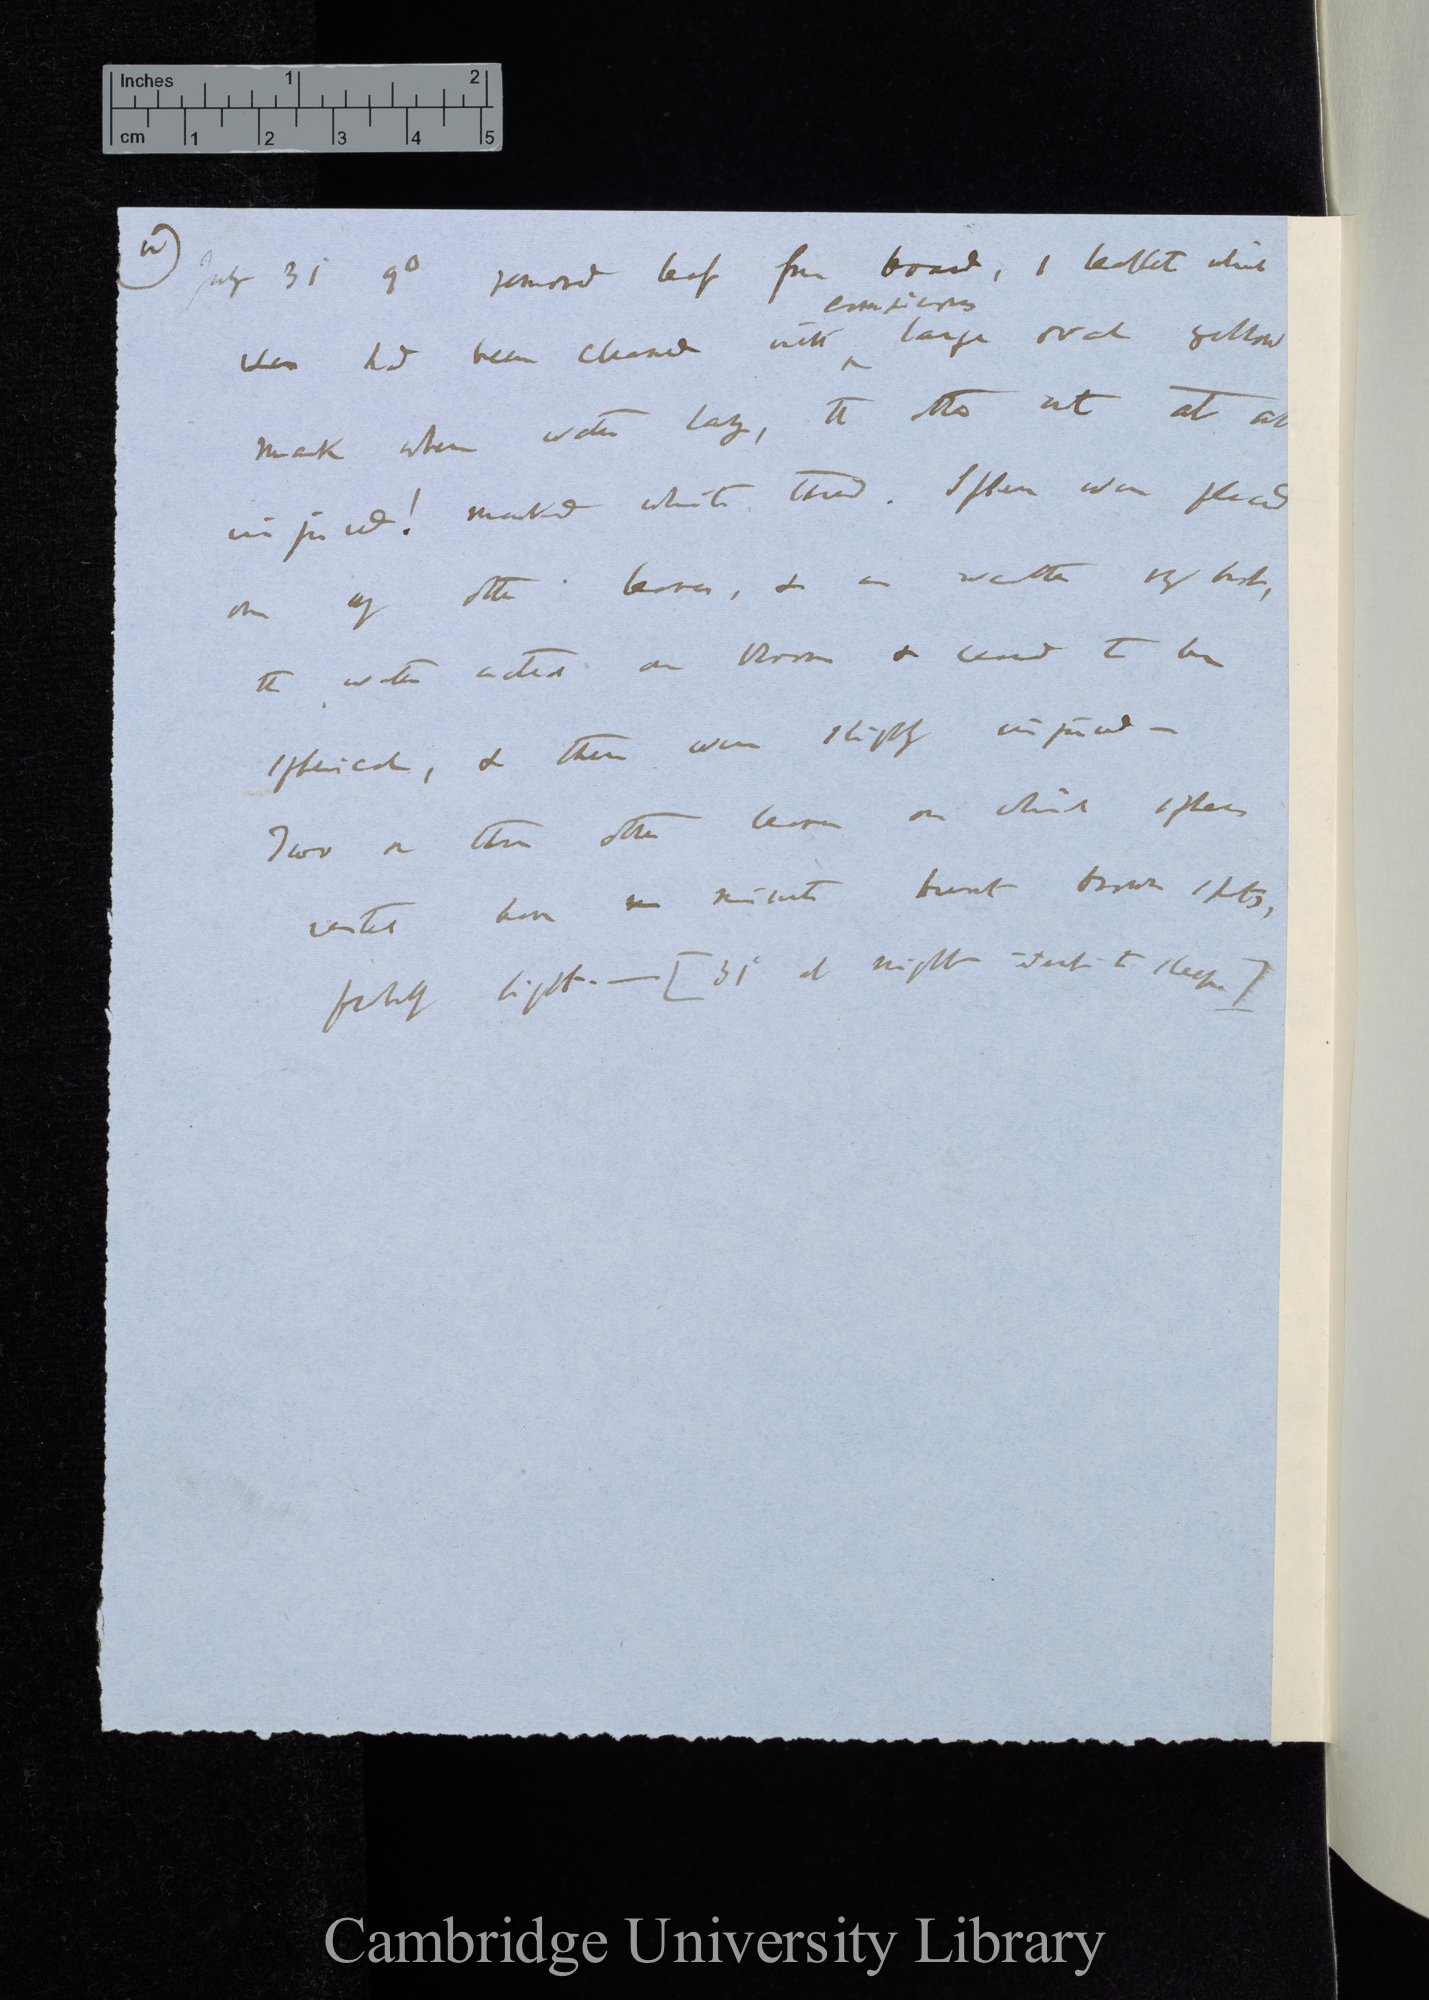 Inches 1 2
cm 1 2 3 4 5
July 31 9° removed leaf from board, 1 leaflet which
conspicuous
had been cleaned with ^ large oval yellow
mark where water lay, the other not at all
injured! marked white thread. Spheres were placed
on other leaves, & as weather
the water acted on bloom & ceased to be
spherical, & these were slightly injured —
Two or three other leaves on which spheres
rested have minute burnt brown spots,
probably light. — [31 at night went to sleep]
Cambridge University Library